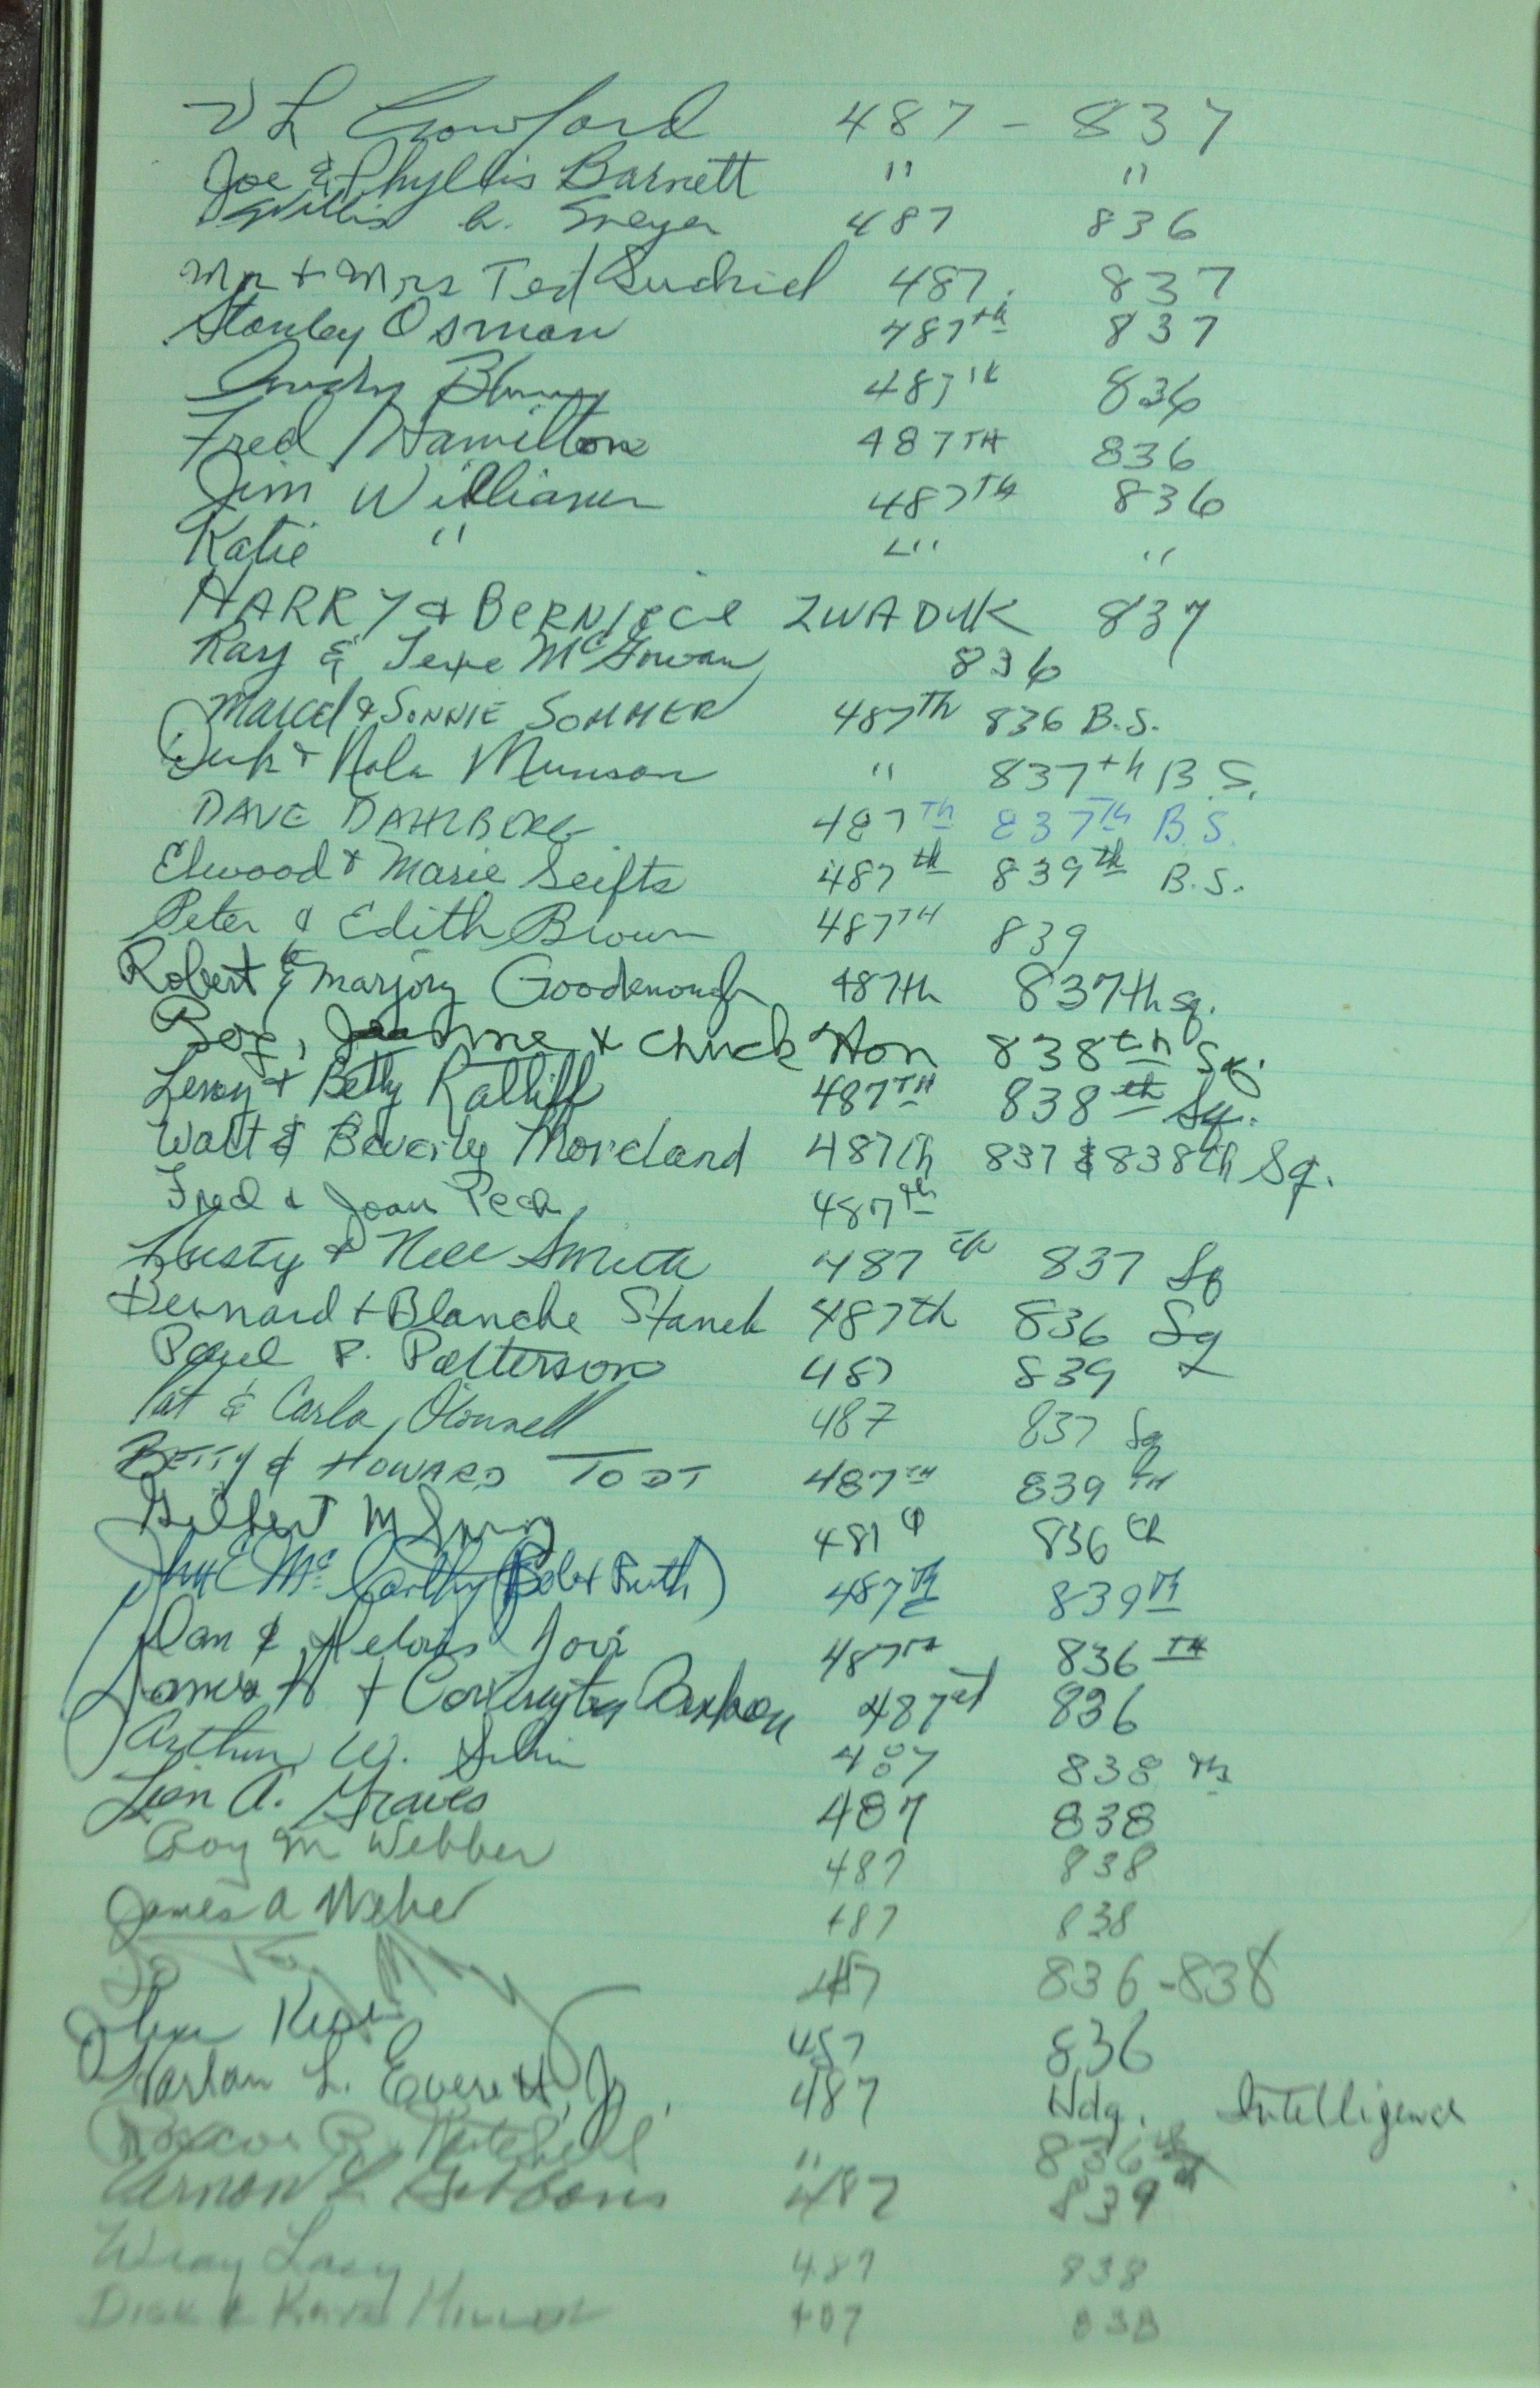 V L Crawford 487 - 837
Joe & Phyllis Barnett " "
Willis 487 836
Mr + Mrs Ted 487. 837
Stanley Osman 487th 837
487th 836
Fred Hamilton 487TH 836
Jim Williams 487TH 836
Katie " " "
HARRY & BERNIECE ZWADUK 837
Ray & McGowan 836
Marcel & SONNIE SOMMER 487Th 836 B.S.
& Nola Munson " 837th B.S.
DAVE DAHLBERG 487Th 837Th B.S.
Elwood & Marie Seifts 487th 839th B.S.
Peter & Edith Brown 487TH 839
Robert & Marjory Goodenough 487th 837th sq.
Roy, Jeanne & Chuck Hon 838th Sq.
Leroy + Betty Ratliff 487TH 838th Sq.
Walt & Beverly Moreland 487th 837 & 838th Sq.
Fred & Joan Peck 487th
Rusty & Nell Smith 487th 837 Sq
Bernard + Blanche Stanek 487th 836 Sq
Paul P. Patterson 487 839
Pat & Carla O'Connell 487 837 Sq
BETTY & HOWARD TODT 487TH 839TH
Gilbert M 836th
McCarthy (Bob + Ruth) 487Th 839Th
Dan & 487TH 836TH
James H + 836
Arthur W. 487 838th
Leon A. Graves 487 838
Roy M Webber 487 838
James A Weber 487 838
487 836-838
487 836
Harlan L. Everett, Jr. 487 Hdq. Intelligence
Mitchell " 836th
Vernon L Gibbons 487 839th
Wray Lacy 487 838
Dick & 487 838